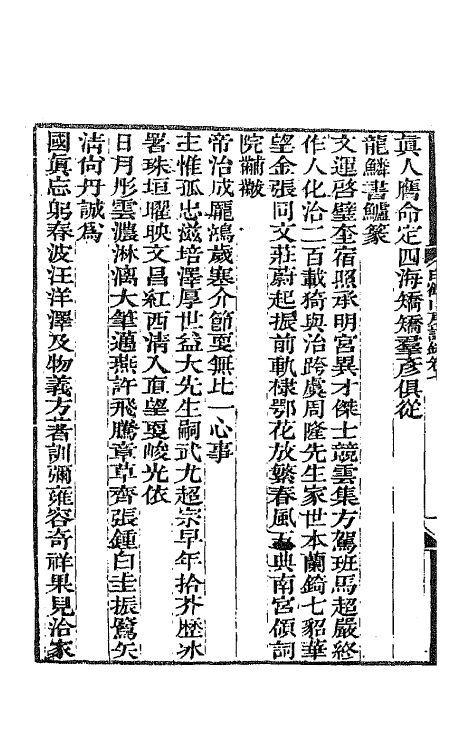 眞人膺命定四海矯矯羣彥俱從
龍鱗書鱸篆
文運啓璧奎宿照承明宮異才傑士競雲集方駕班馬超嚴終
作人化治二百載猗與治跨虞周隆先生家世本蘭錡七貂華
望金張同文莊蔚起振前軌棣鄂花放繁春風五典南宮領詞
院黼黻
帝治成龐鴻歲寒介節夐無比一心事
主惟孤忠滋培澤厚世益大先生嗣武尤超宗早年拾芥歷冰
署珠垣曜映文昌紅西清入直望夐峻光依
日月彤雲濃淋漓大筆邁燕許飛騰章草齊張鍾白圭振鷺矢
清尚丹誠爲
國眞忘躬春波汪洋澤及物義方著訓彌雍容奇祥果見洽家